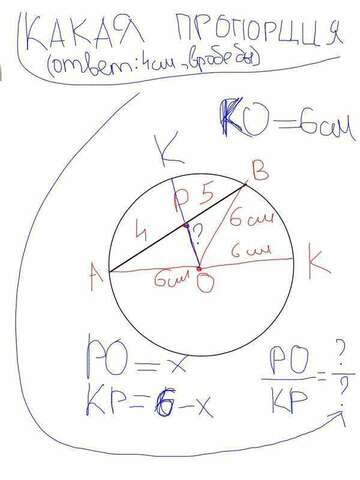 КАКАЯ ПРОПОРЦИЯ
(ответ: 4см, вроде бы)
KO=6см
K
B
P 5
4
6см
?
6см
A
6см
O
K
PO=x
KP=6-x
PO/KP=?/?